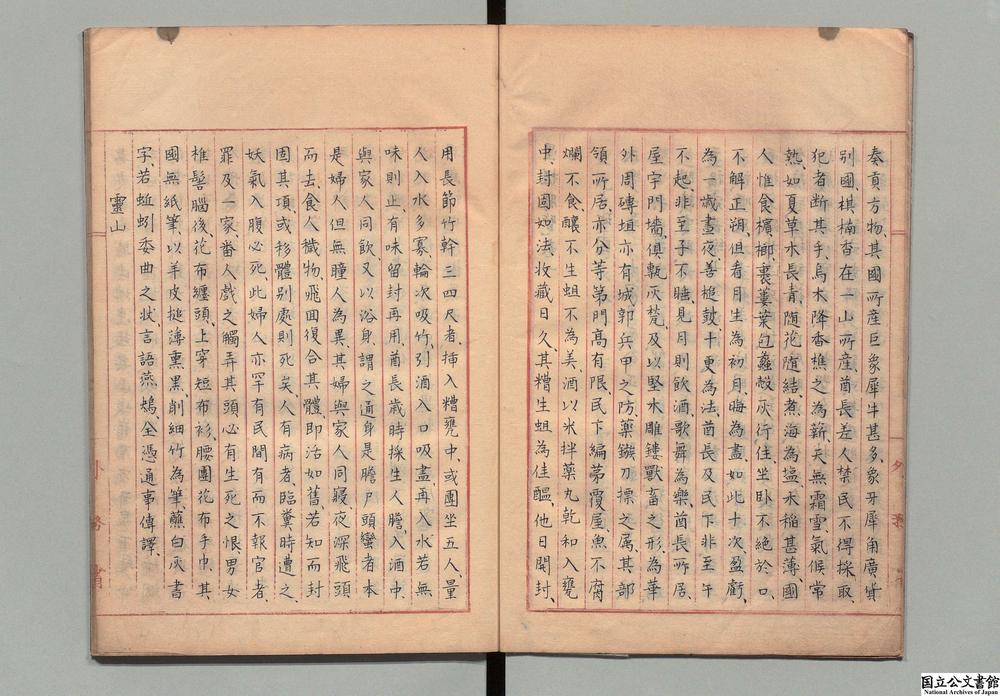 奏貢方物、其國所産巨象犀牛甚多、象牙犀角廣貨
別國、棋楠香在一山所産、酋長差人禁民不得採取、
犯者断其手、烏木降香樵之為薪、天無霜雪、氣候常
熱、如夏草木長青、隨花隨結、煮海為塩、禾稲甚薄、國
人惟食檳榔、裏蔞葉包蠡殼灰行住坐卧不絶於口、
不解正朔、但看月生為初、月晦為盡、如此十次盈虧、
為一歳、晝夜善槌鼓、十更為法、酋長及民下非至午
不起、非至子不睡、見月則飲酒歌舞為樂、酋長所居、
屋宇門墻、俱甎灰甃、及以堅木雕鏤獸畜之形為華
外周磚垣、亦有城郭兵甲之防、藥鏃刀標之属、其部
領所居、亦分等第、門髙有限、民下編茅覆屋、魚不腐
爛不食、釀不生蛆不為美、酒以米拌藥丸乾和入甕
中、封固如法、收藏日久、其糟生蛆為佳醞、他日開封、
用長節竹幹三四尺者、挿入糟甕中、或團坐五人、量
人入水多寡、輪次吸竹、引酒入口、吸盡再入水、若無
味則止、有味留封再用、酋長歳時採生人膽、入酒中
與家人同飲、又以浴身、謂之通身是膽、尸頭蠻者本
是婦人、但無瞳人為異、其婦與家人同寢、夜深飛頭
而去、食人穢物、飛回復合其體、即活如舊、若知而封
固其項、或移體别處則死矣、人有病者、臨糞時遭之
妖氣入腹必死、此婦人亦罕有、民間有而不報官者、
罪及一家、番人戲之觸弄其頭、必有生死之恨、男女
椎髻腦後、花布纏頭、上穿短布衫、腰圍花布手巾、其
國無紙筆、以羊皮搥薄熏黑、削細竹為筆、蘸白灰書
字、若蚯蚓委曲之状、言語燕鴂、全憑通事傳譯、
靈山
国立公文書館
National Archives of Japan